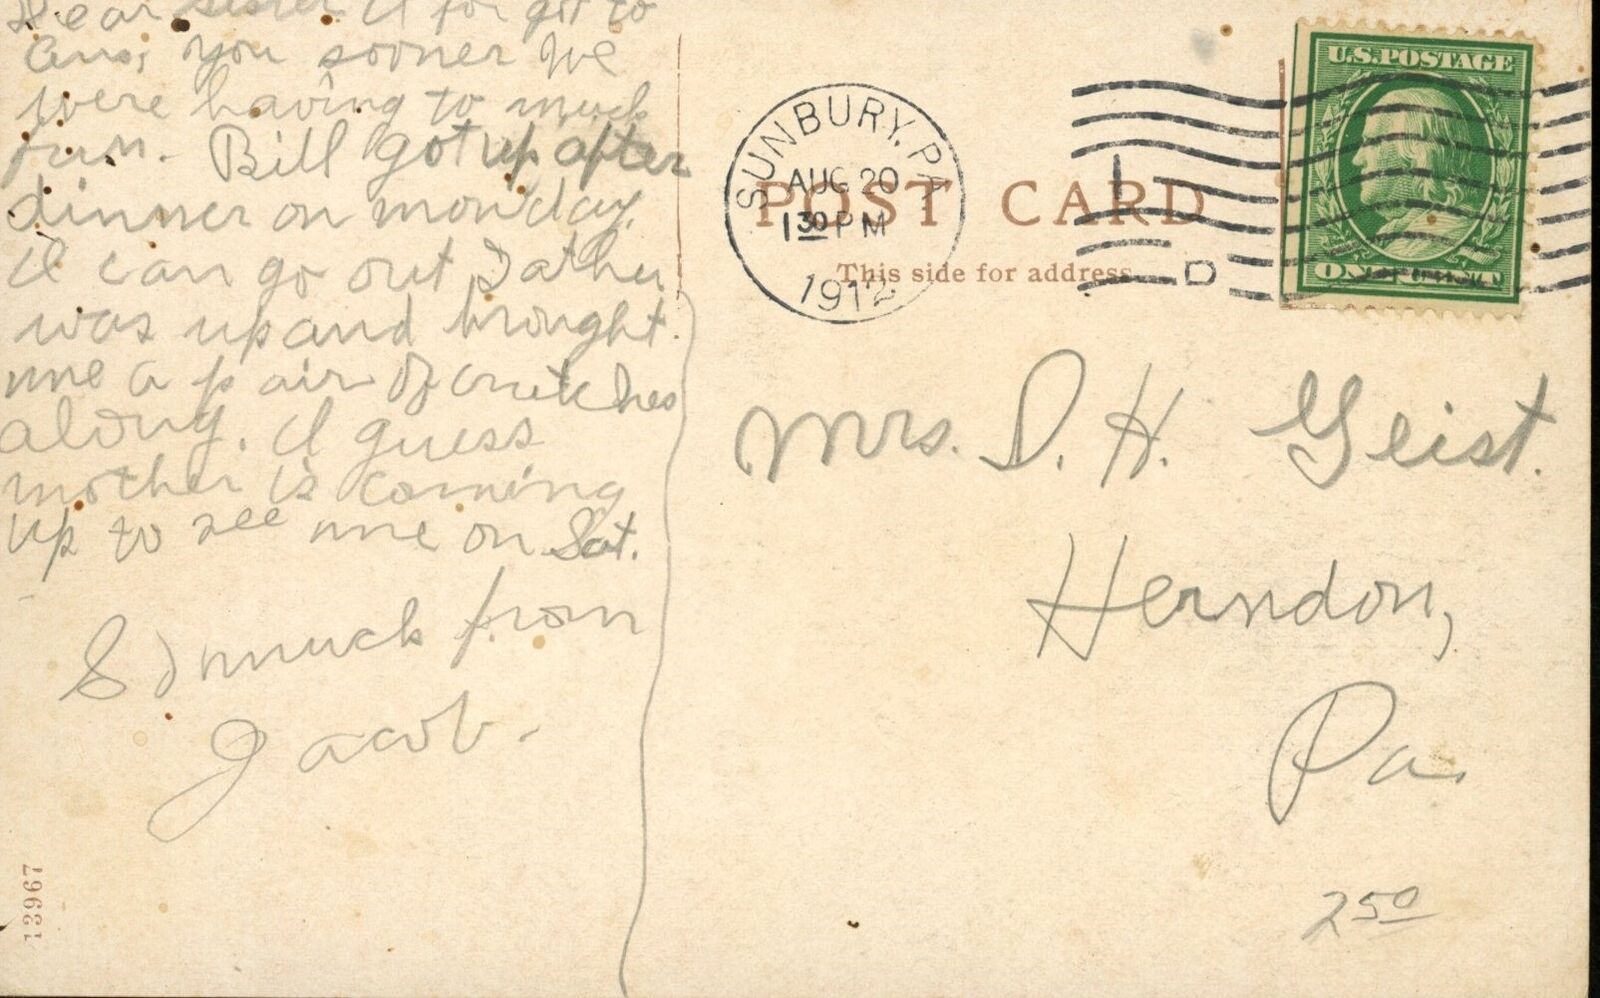 Dear sister I for got to
ans, you sooner We
were having to much
fun. Bill got up after
dinner on monday.
I can go out Father
was up and brought
me a pair of crutches
along. I guess
mother is coming
up to see me on Sat.
So much from
Jacob.
13967
SUNBURY, PA.
AUG 20
1 30 PM
1912
POST CARD
This side for address
D
U.S. POSTAGE
ONE CENT
Mrs. D. H. Geist.
Herndon,
Pa.
250